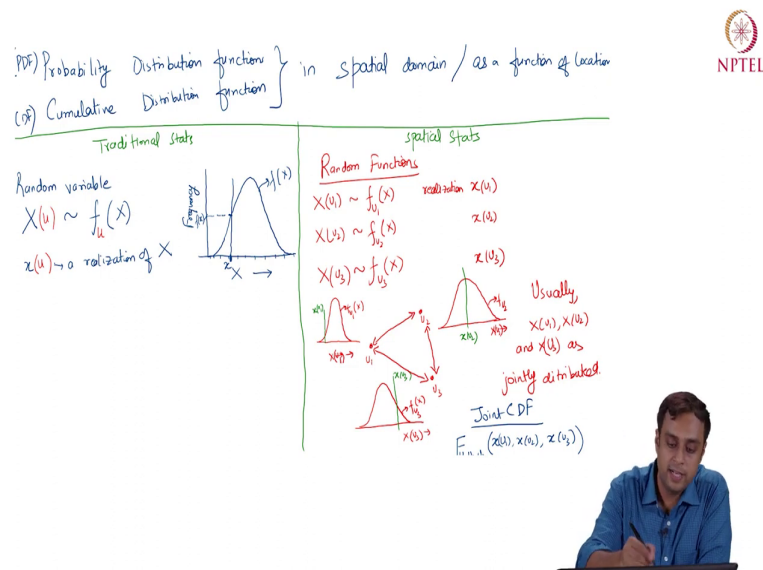 PDF) Probability Distribution function
in spatial domain / as a function of location
CDF) Cumulative Distribution function
NPTEL
Traditional Stats
Spatial Stats
Random variable
X(u) ~ f_u(x)
x(u) → a realization of X
Frequency
f(x)
f(x)
x
X →
Random Functions
X(u₁) ~ f_u₁(x) realization x(u₁)
X(u₂) ~ f_u₂(x) x(u₂)
X(u₃) ~ f_u₃(x) x(u₃)
x(u₁)
f_u₁(x)
X(u₁) →
u₁
u₂
u₃
f_u₂
x(u₂)
X(u₂) →
x(u₃)
f_u₃(x)
X(u₃) →
Usually,
X(u₁), X(u₂)
and X(u₃) as
jointly distributed.
Joint CDF
F (x(u₁), x(u₂), x(u₃))